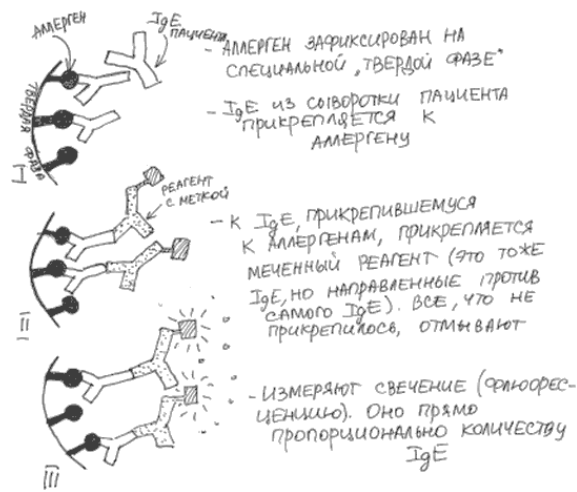 АЛЛЕРГЕН
IgE
ПАЦИЕНТА
- АЛЛЕРГЕН ЗАФИКСИРОВАН НА
СПЕЦИАЛЬНОЙ „ТВЕРДОЙ ФАЗЕ"
- IgE ИЗ СЫВОРОТКИ ПАЦИЕНТА
ПРИКРЕПЛЯЕТСЯ К
АЛЛЕРГЕНУ
ТВЕРДАЯ ФАЗА
I
РЕАГЕНТ
С МЕТКОЙ
- К IgE, ПРИКРЕПИВШЕМУСЯ
К АЛЛЕРГЕНАМ, ПРИКРЕПЛЯЕТСЯ
МЕЧЕННЫЙ РЕАГЕНТ (ЭТО ТОЖЕ
IgE, НО НАПРАВЛЕННЫЕ ПРОТИВ
САМОГО IgE). ВСЕ, ЧТО НЕ
ПРИКРЕПИЛОСЬ, ОТМЫВАЮТ
II
- ИЗМЕРЯЮТ СВЕЧЕНИЕ (ФЛЮОРЕС-
ЦЕНЦИЮ). ОНО ПРЯМО
ПРОПОРЦИОНАЛЬНО КОЛИЧЕСТВУ
IgE
III